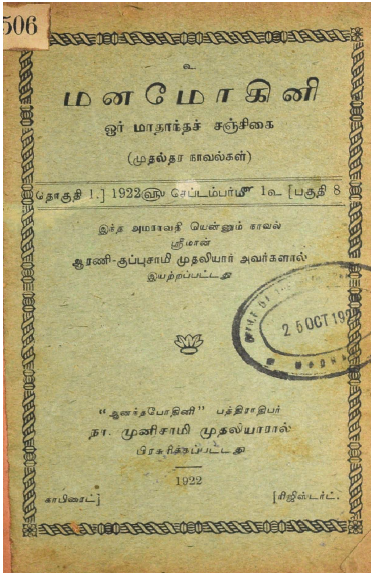 506
உ
மனமோகினி
ஓர் மாதாந்தச் சஞ்சிகை
(முதல்தர நாவல்கள்)
தொகுதி 1.] 1922௵ செப்டம்பர்௴ 1௳ [பகுதி 8
இந்த அமராவதி யென்னும் நாவல்
ஸ்ரீமான்
ஆரணி-குப்புசாமி முதலியார் அவர்களால்
இயற்றப்பட்டது
25 OCT 192
"ஆனந்தபோதினி" பத்திராதிபர்
நா. முனிசாமி முதலியாரால்
பிரசுரிக்கப்பட்டது
1922
காபிரைட்]
[ரிஜிஸ்டர்ட்.